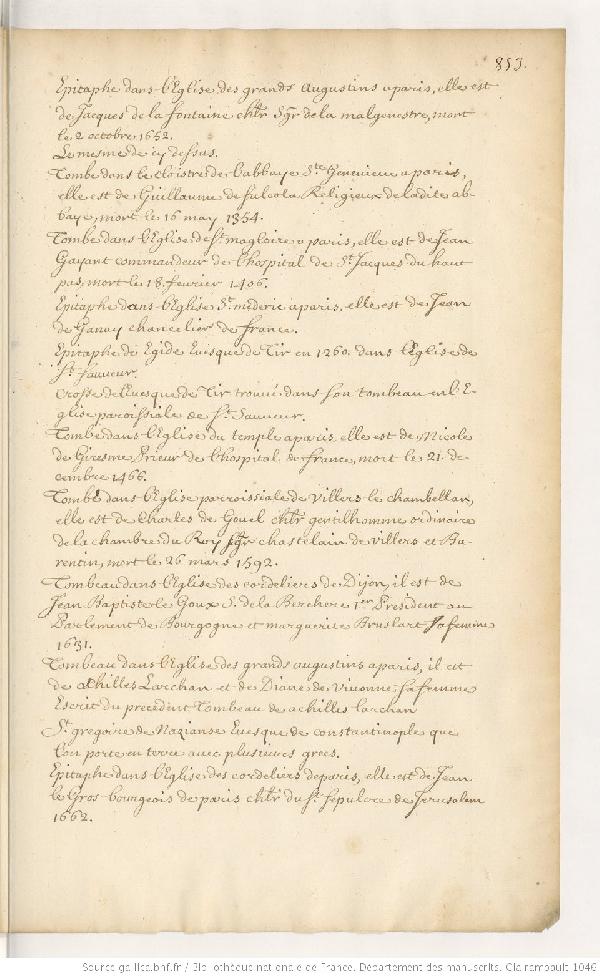 853.
Epitaphe dans l'Eglise des grands Augustins a paris, elle est
de Jacques de la fontaine chlr Sgr de la malgenestre, mort
le 2 octobre 1652.
Le mesme de cy dessus.
Tombe dans le Cloistre de l'abbaye Ste Genevieve a paris,
elle est de Guillaume de fulcola Religieux de ladite ab-
baye, mort le 16 may 1354.
Tombe dans l'Eglise de St magloire a paris, elle est de Jean
Gayant commandeur de l'hospital de St Jacques du haut
pas, mort le 18. fevrier 1406.
Epitaphe dans l'Eglise St mederic a paris, elle est de Jean
de Ganay chancelier de france.
Epitaphe de Egide Evesque de Tir en 1260. dans l'Eglise de
St Sauveur.
Crosse de l'Evesque de Tir trouvé dans son tombeau en l'E-
glise paroissiale de St Sauveur.
Tombe dans l'Eglise du temple a paris, elle est de Nicole
de Giresme Prieur de l'hospital de france, mort le 21. de-
cembre 1466.
Tombe dans l'Eglise parroissiale de Villers le chambellan,
elle est de Charles de Gouel chlr gentilhomme ordinaire
de la chambre du Roy Sgr chastelain de Villers et Ba-
rentin, mort le 26 mars 1592.
Tombeau dans l'Eglise des cordeliers de Dijon, il est de
Jean Baptiste le Goux S. de la Berchere 1er President au
Parlement de Bourgogne et marguerite Bruslart sa femme
1631.
Tombeau dans l'Eglise des grands augustins a paris, il est
de achilles Larchan et de Diane de Vivonne sa femme
Escrit du precedent Tombeau de achilles larchan
St gregoire de Nazianse Evesque de constantinople que
l'on porte en terre avec plusieurs grecs.
Epitaphe dans l'Eglise des cordeliers de paris, elle est de Jean
le Gros bourgeois de paris chlr du St Sepulcre de Jerusalem
1662.
Source gallica.bnf.fr / Bibliothèque nationale de France. Département des manuscrits. Clairambault 1046